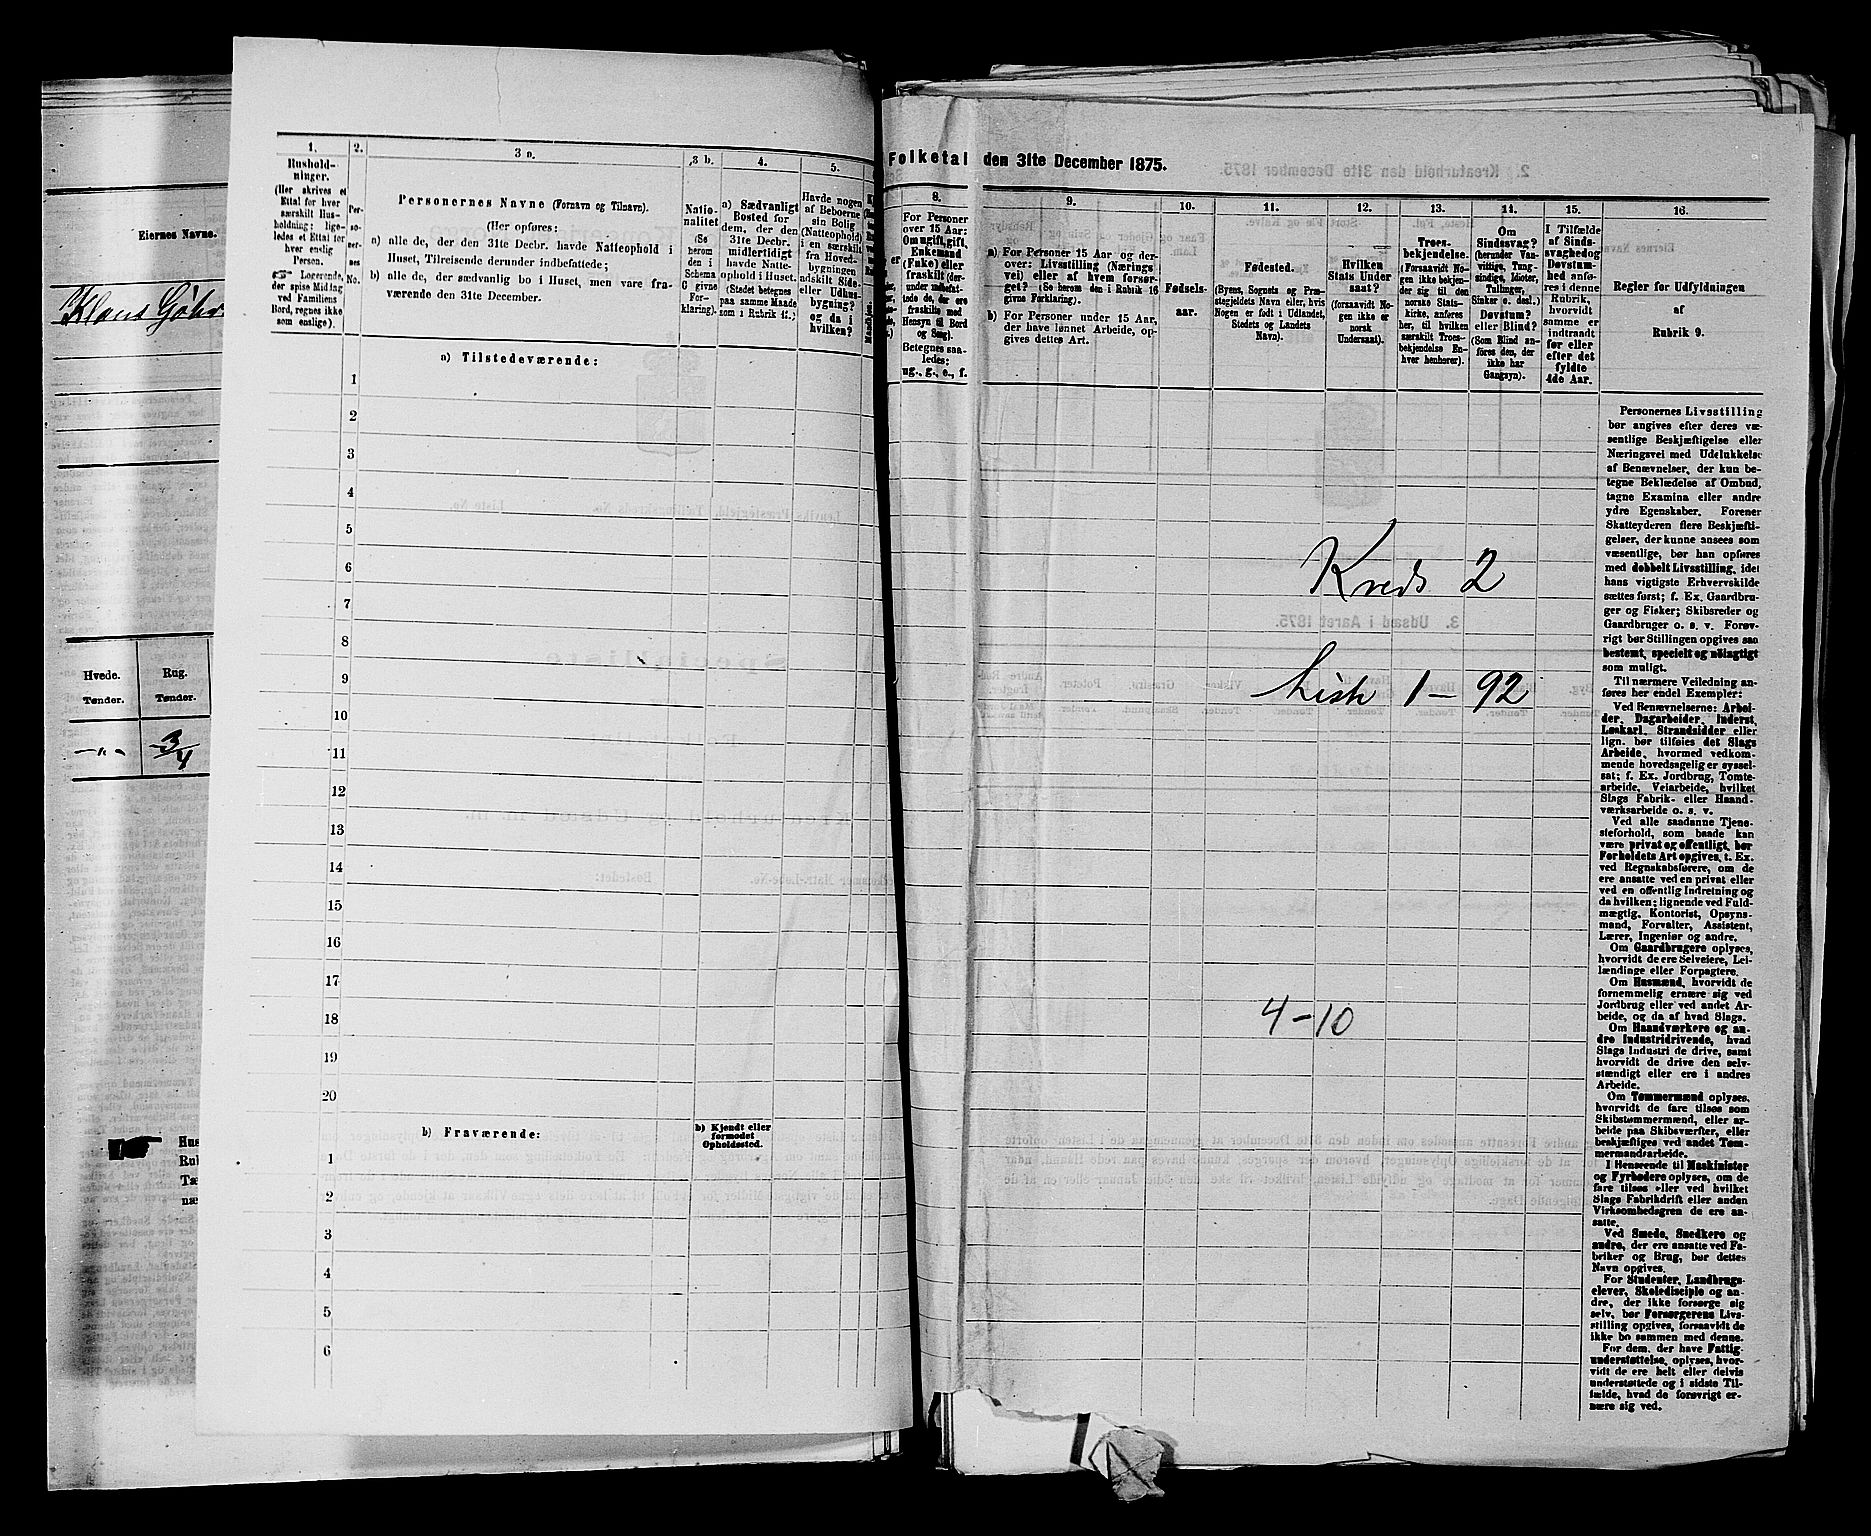 Eiernes Navne.
Klaus
Hvede. Rug.
Tønder. Tønder.
-„- 3/4
1.
Hushold-
ninger.
(Her skrives et
Ettal for hver
særskilt Hus-
holdning; lige-
ledes et Ettal for
hver enslig
Person.
Logerende,
der spise Middag
ved Familiens
Bord, regnes ikke
som enslige).
2.
Per-
so-
ner-
nes
No.
3 a.
Personernes Navne (Fornavn og Tilnavn).
(Her opføres:
a) alle de, der den 31te Decbr. havde Natteophold i
Huset, Tilreisende derunder indbefattede;
b) alle de, der sædvanlig bo i Huset, men vare fra-
værende den 31te December.
3 b.
Natio-
nalitet
(Se
herom
den i
Schema
C givne
For-
klaring).
4.
a) Sædvanligt
Bosted for
dem, der den
31te Decbr.
midlertidigt
havde Natte-
ophold i Huset.
(Stedet betegnes
paa samme Maade
som i Rubrik 11.)
5.
Havde nogen
af Beboerne
sin Bolig
(Natteophold)
i en særskilt
fra Hoved-
bygningen
adskilt Side-
eller Udhus-
bygning?
og da i
hvilken?
a) Tilstedeværende:
1
2
3
4
5
6
7
8
9
10
11
12
13
14
15
16
17
18
19
20
b) Fraværende:
b) Kjendt eller
formodet
Opholdssted.
1
2
3
4
5
6
Folketal den 31te December 1875.
8.
For Personer
over 15 Aar:
Om ugift, gift,
Enkemand
(Enke) eller
fraskilt (der-
under indbefat-
tede de, der ere
fraskilte med
Hensyn til Bord
og Seng).
Betegnes saa-
ledes:
ug., g., e., f.
9.
a) For Personer 15 Aar og der-
over: Livsstilling (Nærings-
vei) eller af hvem forsør-
get? (Se herom den i Rubrik 16
givne Forklaring).
b) For Personer under 15 Aar,
der have lønnet Arbeide, op-
gives dettes Art.
10.
Fødsels-
aar.
11.
Fødested.
(Byens, Sognets og Præ-
stegjeldets Navn eller, hvis
Nogen er født i Udlandet,
Stedets og Landets
Navn).
12.
Hvilken
Stats Under-
saat?
(forsaavidt No-
gen ikke er
norsk
Undersaat).
13.
Troes-
bekjendelse.
(Forsaavidt No-
gen ikke bekjen-
der sig til den
norske Stats-
kirke, anføres
her, til hvilken
særskilt Troes-
bekjendelse En-
hver henhører).
14.
Om
Sindssvag?
(herunder Van-
vittige, Tung-
sindige, Idioter,
Tullinger,
Sinker o. desl.)
Døvstum?
eller Blind?
(Som Blind an-
føres den, der
ikke har
Gangsyn).
15.
I Tilfælde
af Sinds-
svaghed og
Døvstum-
hed anfø-
res i denne
Rubrik,
hvorvidt
samme er
indtraadt
før eller
efter det
fyldte
4de Aar.
16.
Regler for Udfyldningen
af
Rubrik 9.
Kreds 2
Liste 1 - 92
4-10
Personernes Livsstilling
bør angives efter deres væ-
sentlige Beskjæftigelse eller
Næringsvei med Udelukkelse
af Benævnelser, der kun be-
tegne Beklædelse af Ombud,
tagne Examina eller andre
ydre Egenskaber. Forener
Skatteyderen flere Beskjæfti-
gelser, der kunne ansees som
væsentlige, bør han opføres
med dobbelt Livsstilling, idet
hans vigtigste Erhvervskilde
sættes først; f. Ex. Gaardbru-
ger og Fisker; Skibsreder og
Gaardbruger o. s. v. Forøv-
rigt bør Stillingen opgives saa
bestemt, specielt og nöiagtigt
som muligt.
Til nærmere Veiledning an-
føres her endel Exempler:
Ved Benævnelserne: Arbei-
der, Dagarbeider, Inderst,
Løskarl, Strandsidder eller
lign. bør tilføies det Slags
Arbeide, hvormed vedkom-
mende hovedsagelig er syssel-
sat; f. Ex. Jordbrug, Tomte-
arbeide, Veiarbeide, hvilket
Slags Fabrik- eller Haand-
værksarbeide o. s. v.
Ved alle saadanne Tjene-
steforhold, som baade kan
være privat og offentligt, bør
Forholdets Art opgives, t. Ex.
ved Regnskabsførere, om de
ere ansatte ved en privat eller
ved en offentlig Indretning og
da hvilken; lignende ved Fuld-
mægtig, Kontorist, Opsyns-
mand, Forvalter, Assistent,
Lærer, Ingeniør og andre.
Om Gaardbrugere oplyses,
hvorvidt de ere Selveiere, Lei-
lændinge eller Forpagtere.
Om Husmænd, hvorvidt de
fornemmelig ernære sig ved
Jordbrug eller ved andet Ar-
beide, og da af hvad Slags.
Om Haandværkere og an-
dre Industridrivende, hvad
Slags Industri de drive, samt
hvorvidt de drive den selv-
stændigt eller ere i andres
Arbeide.
Om Tømmermænd oplyses,
hvorvidt de fare tilsøs som
Skibstømmermænd, eller ar-
beide paa Skibsværfter, eller
beskjæftiges ved andet Tøm-
mermandsarbeide.
I Henseende til Maskinister
og Fyrbødere oplyses, om de
fare tilsøs eller ved hvilket
Slags Fabrikdrift eller anden
Virksomhedsgren de ere an-
satte.
Ved Smede, Snedkere og
andre, der ere ansatte ved Fa-
briker og Brug, bør dettes
Navn opgives.
For Studenter, Landbrugs-
elever, Skoledisciple og an-
dre, der ikke forsørge sig
selv, bør Forsørgerens Livs-
stilling opgives, forsaavidt de
ikke bo sammen med denne.
For dem, der have Fattig-
understøttelse, oplyses, hvor-
vidt de ere helt eller delvis
understøttede og i sidste Til-
fælde, hvad de forøvrigt er-
nære sig ved.